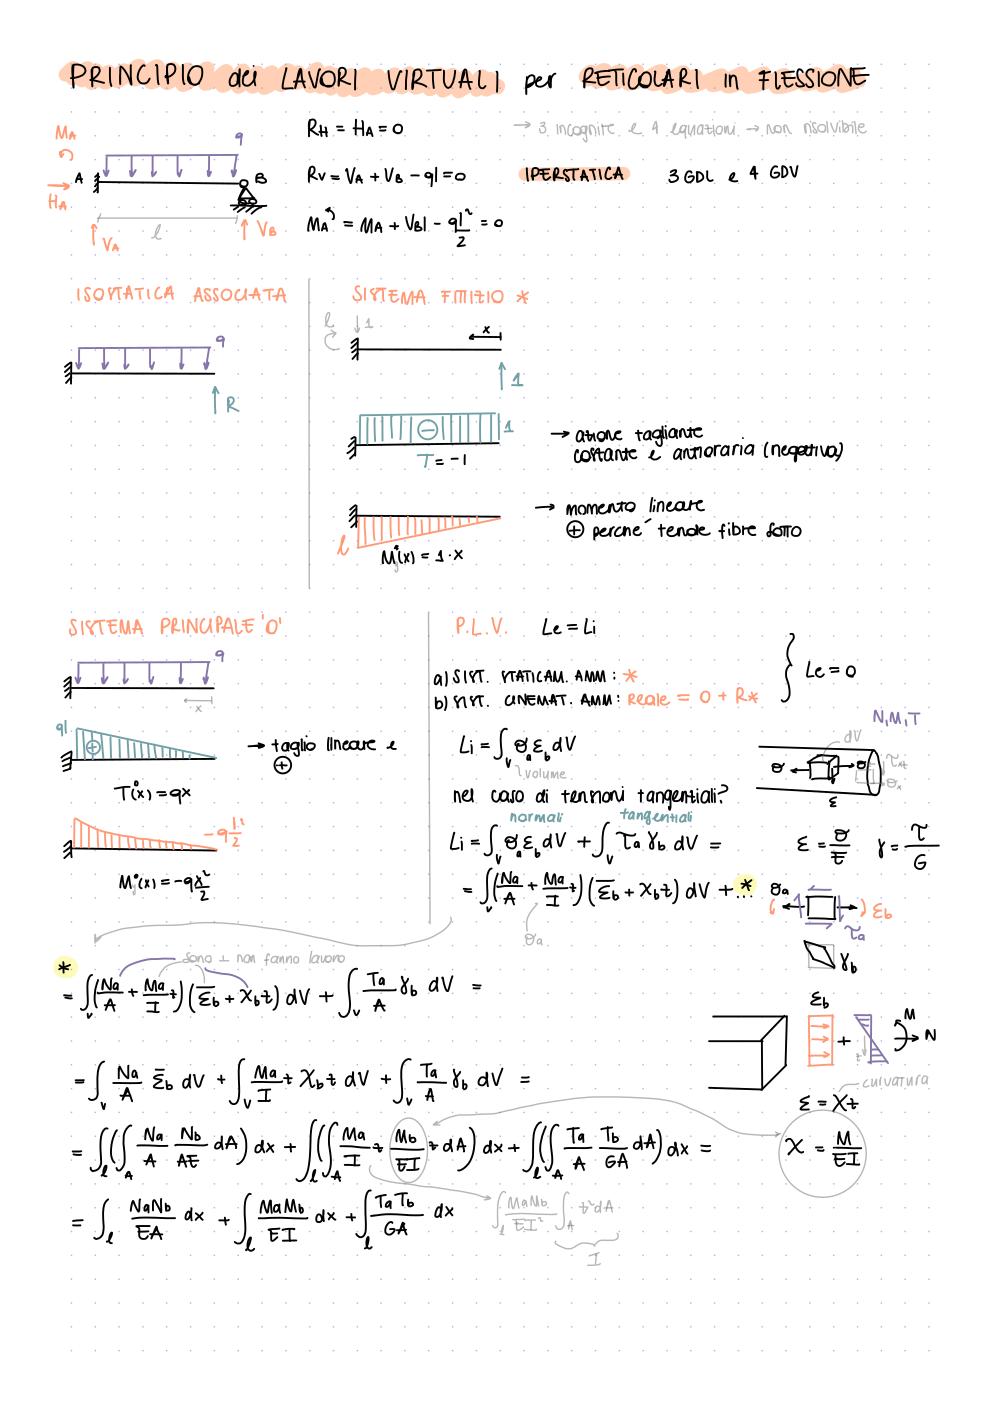 PRINCIPIO dei LAVORI VIRTUALI per RETICOLARI in FLESSIONE
MA
q
A
B
HA
VA
l
VB
RH = HA = 0
→ 3 incognite e 4 equazioni → non risolvibile
RV = VA + VB - ql = 0
IPERSTATICA
3 GDL e 4 GDV
MA = MA + VBl - ql²/2 = 0
ISOSTATICA ASSOCIATA
q
R
SISTEMA FITTIZIO *
l
1
x
1
1
T = -1
→ azione tagliante
costante e antioraria (negativa)
l
M*(x) = 1·x
→ momento lineare
⊕ perché tende fibre sotto
SISTEMA PRINCIPALE 'O'
q
x
ql
⊕
T°(x) = qx
→ taglio lineare e
⊕
-q l²/2
M°(x) = -q x²/2
P.L.V. Le = Li
a) SIST. STATICAM. AMM: *
b) SIST. CINEMAT. AMM: reale = O + R*
} Le = 0
Li = ∫v σa εb dV
volume
N,M,T
dV
σ
σ
τxt
σx
ε
nel caso di tensioni tangenziali?
normali
tangentiali
Li = ∫v σa εb dV + ∫v τa γb dV =
ε = σ/E γ = τ/G
= ∫v (Na/A + Ma/I z)(ε̄b + χb z) dV + *...
σa
σa
εb
τa
γb
sono ⊥ non fanno lavoro
*
= ∫v (Na/A + Ma/I z)(ε̄b + χb z) dV + ∫v Ta/A γb dV =
εb
+
M
N
z
curvatura
ε = χz
= ∫v Na/A ε̄b dV + ∫v Ma/I z χb z dV + ∫v Ta/A γb dV =
= ∫l (∫A Na/A Nb/AE dA) dx + ∫l (∫A Ma/I z Mb/EI z dA) dx + ∫l (∫A Ta/A Tb/GA dA) dx =
χ = M/EI
= ∫l NaNb/EA dx + ∫l MaMb/EI dx + ∫l TaTb/GA dx
∫l MaMb/EI² ∫A z² dA
I